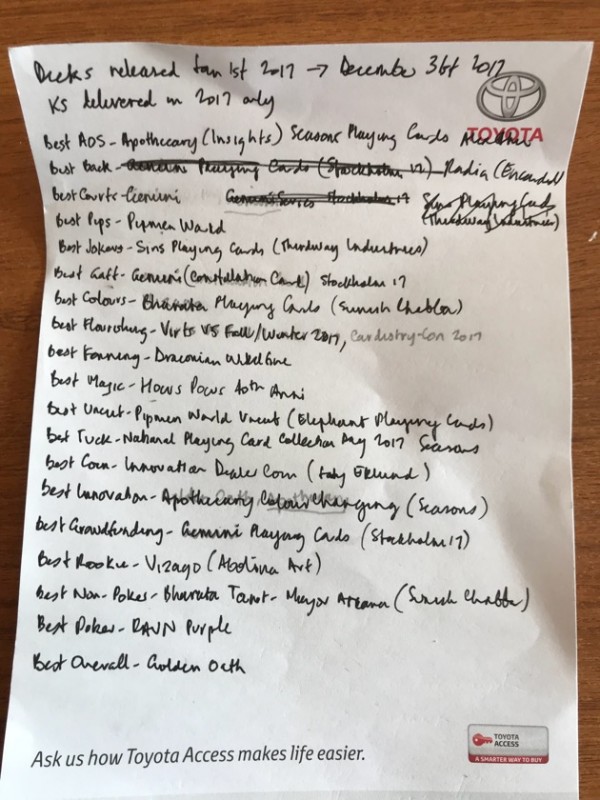 Decks released Jan 1st 2017 → December 31st 2017
KS delivered in 2017 only
TOYOTA
Best AOS - Apothecary (Insights) Seasons Playing Cards
Best Back - Gemini Playing Cards (Stockholm 17) - Radia (Encarded)
Best Courts - Gemini Gemini Series Stockholm 17 Sins Playing Cards
(Thirdway Industries)
Best Pips - Pipmen World
Best Jokers - Sins Playing Cards (Thirdway Industries)
Best Gaff - Gemini (Constellation Card) Stockholm 17
Best Colours - Bharata Playing Cards (Sunish Chabba)
Best Flourishing - Virts VS Fall/Winter 2017, Cardistry-Con 2017
Best Fanning - Draconian Wildfire
Best Magic - Hocus Pocus 10th Anni
Best Uncut - Pipmen World Uncut (Elephant Playing Cards)
Best Tuck - National Playing Card Collection Day 2017 Seasons
Best Coin - Innovation Dealer Coin (Eklund)
Best Innovation - Apothecary Colour Changing (Seasons)
Best Crowdfunding - Gemini Playing Cards (Stockholm 17)
Best Rookie - Vizago (Abolina Art)
Best Non-Poker - Bharata Tarot - Mayor Arcana (Sunish Chabba)
Best Poker - RAVN Purple
Best Overall - Golden Oath
Ask us how Toyota Access makes life easier.
TOYOTA
ACCESS
A SMARTER WAY TO BUY